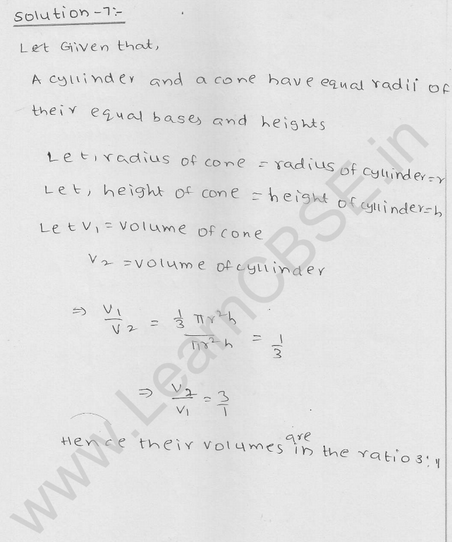 Solution-7:-
Let Given that,
A cyllinder and a cone have equal radii of
their equal bases and heights
Let, radius of cone = radius of cyllinder=r
Let, height of cone = height of cyllinder=h
Let V1 = Volume of cone
V2 = Volume of cyllinder
⇒ V1/V2 = 1/3 πr²h / πr²h = 1/3
⇒ V2/V1 = 3/1
Hence their volumes are in the ratio 3:1
www.LearnCBSE.in